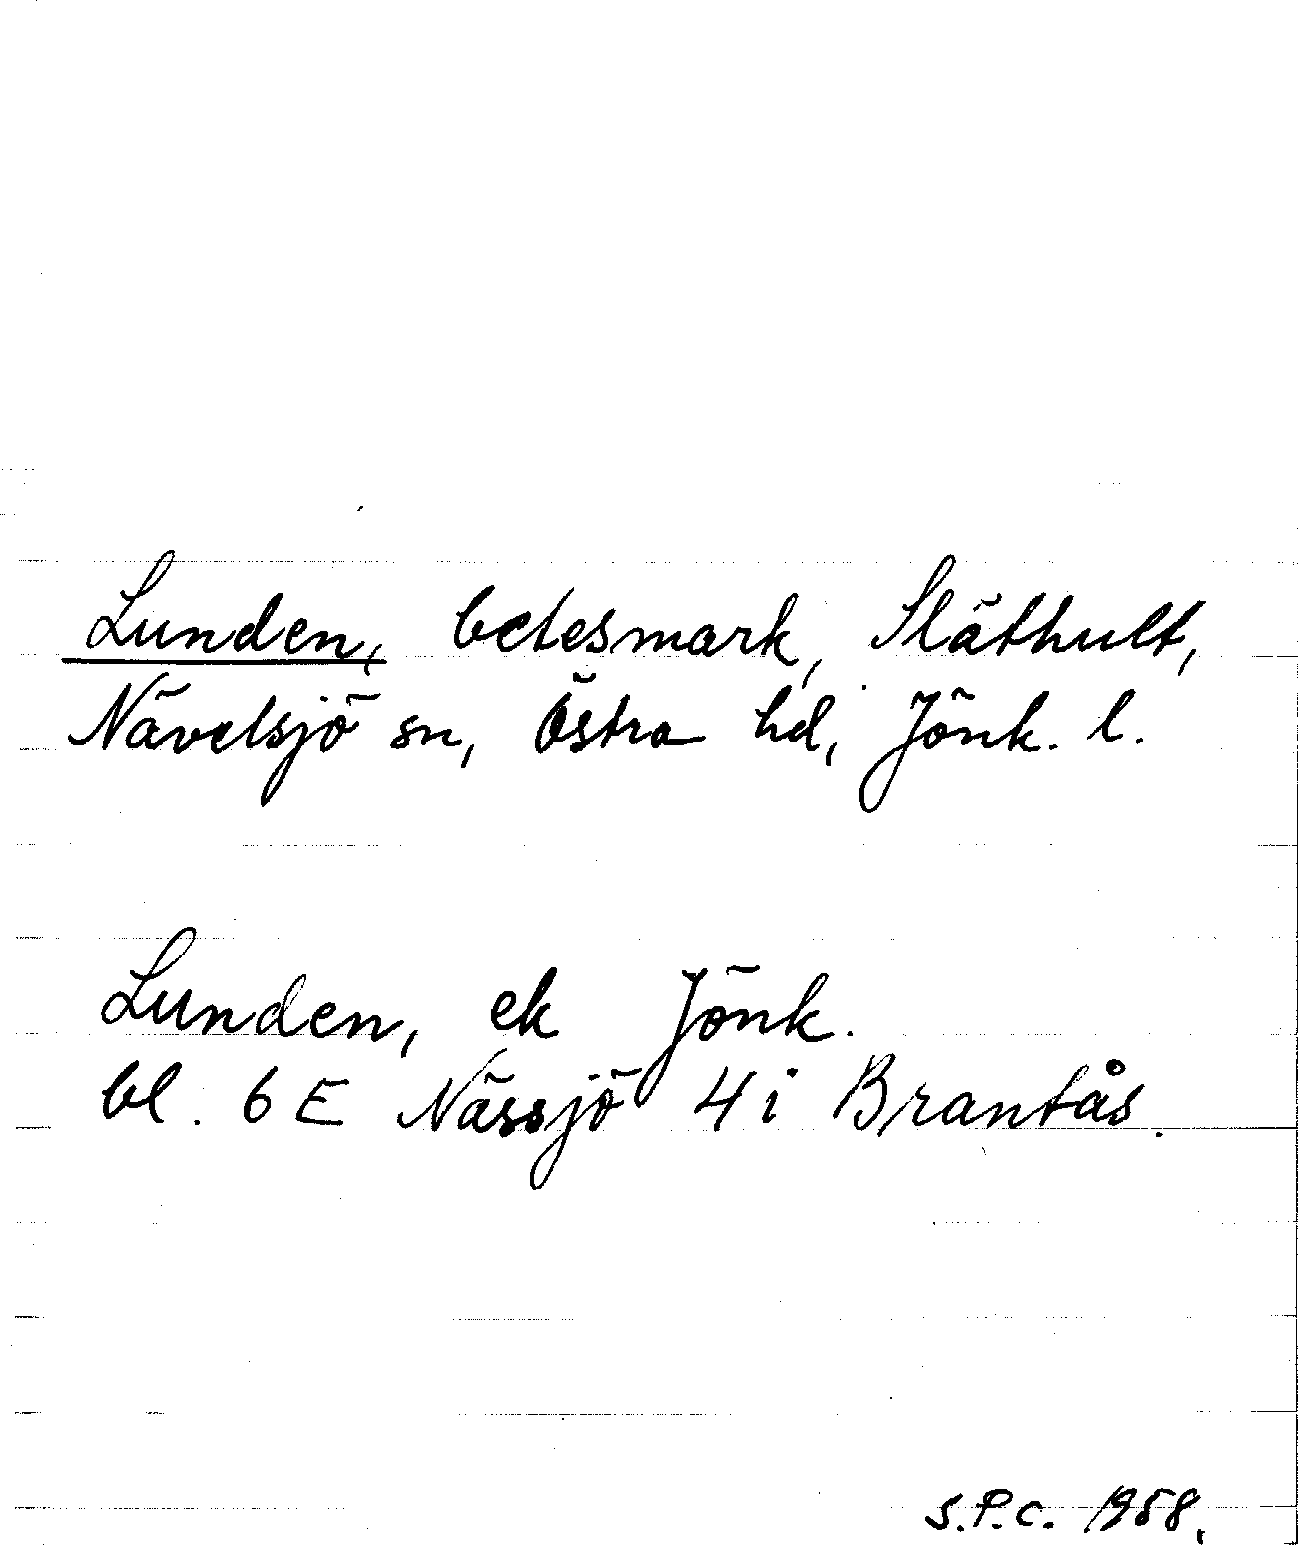 Lunden, betesmark, Släthult,
Nävelsjö sn, Östra hd, Jönk. l.
Lunden, ek Jönk.
bl. 6 E Nässjö 4 i Brantås.
S.P.C. 1958.